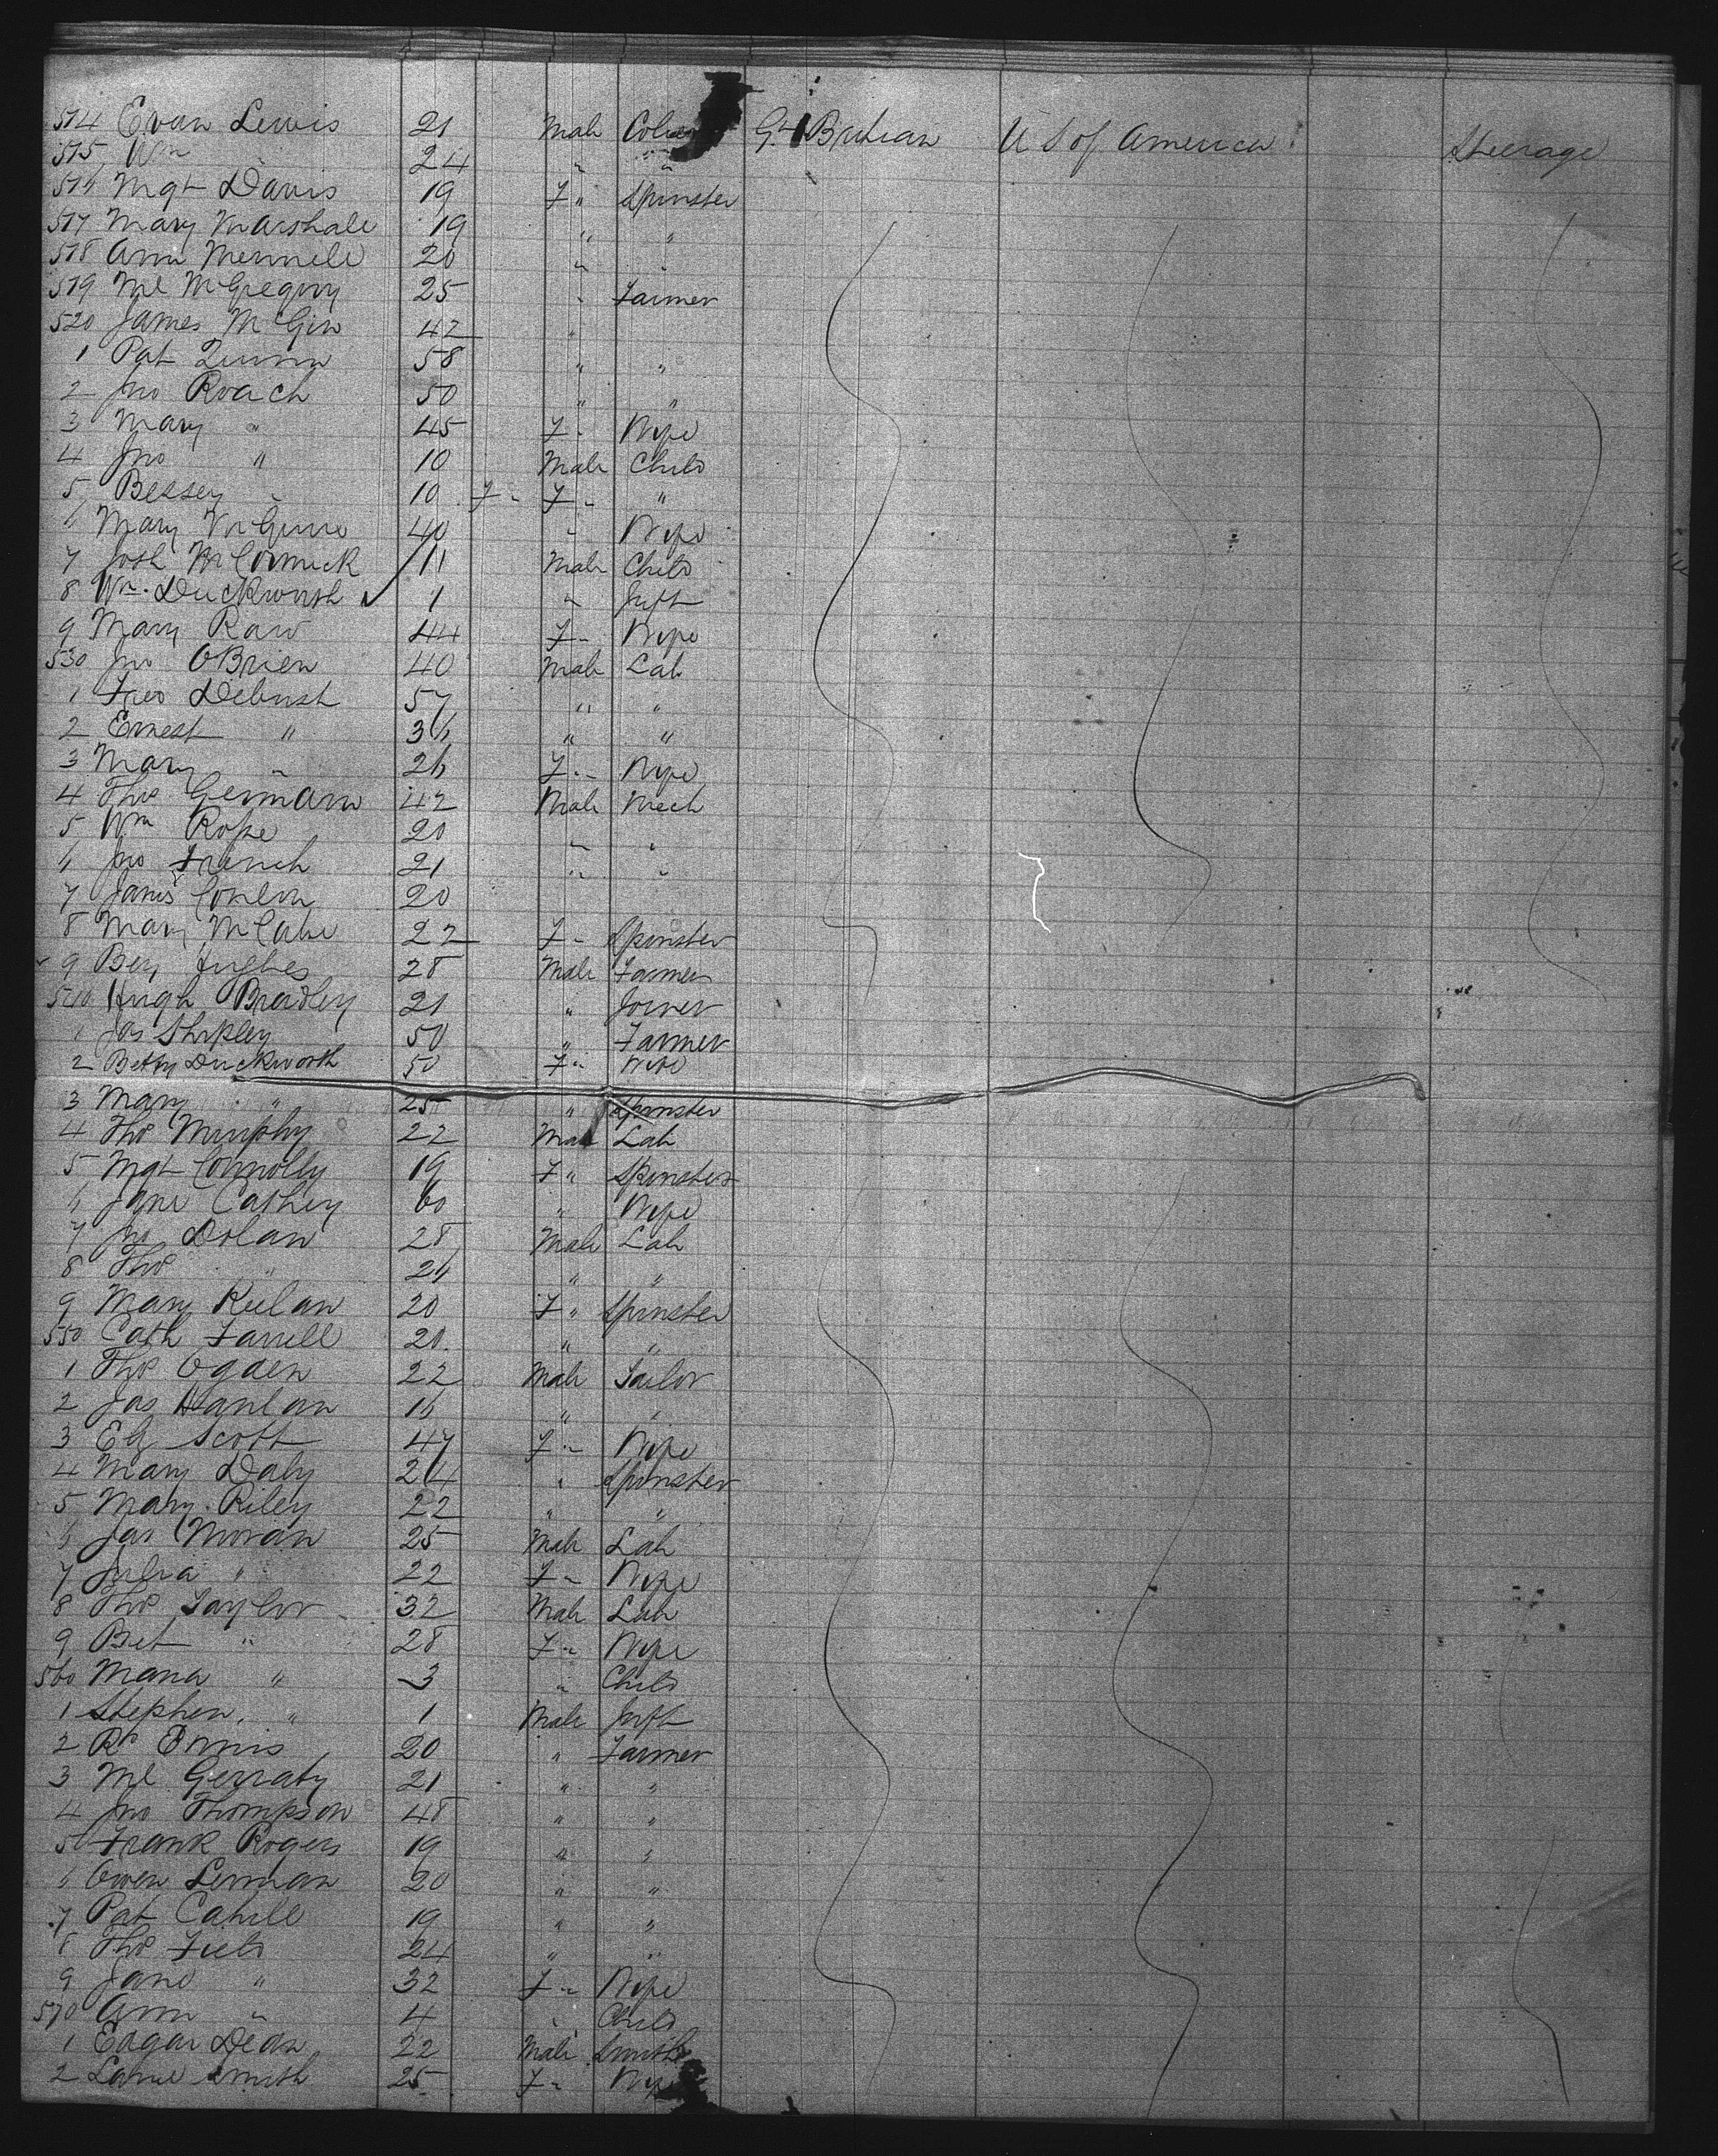 514 Evan Lewis 21 Male G.t Britian U S of America Steerage
515 Wm " 24 " "
516 Mgt Davis 19 F " Spinster
517 Mary Marshall 19 " "
518 Ann 20 " "
519 Ml McGregory 25 " Farmer
520 James McGin 42 "
1 Pat Quinn 58 " "
2 Jno Roach 50 " "
3 Mary " 45 F " Wife
4 Jno " 10 Male Child
5 Bessey " 10 F " F " "
6 Mary 40 " Wife
7 Josh McCormick 11 Male Child
8 Wm. Duckworth 1 " Inft
9 Mary Raw 44 F " Wife
530 Jno OBrien 40 Male Lab
1 Fred 57 " "
2 Ernest " 36 " "
3 Mary " 26 F " Wife
4 Thos Germann 42 Male Mech
5 Wm Rope 20 " "
6 Jno French 21 " "
7 James Conlon 20
8 Mary McCabe 22 F " Spinster
9 Benj Hughes 28 Male Farmer
540 Hugh Bradley 21 " Joiner
1 Jas Shipley 50 " Farmer
2 Betty Duckworth 50 F " Wife
3 Mary " 25 " Spinster
4 Thos Murphy 22 Male Lab
5 Mgt Connolly 19 F " Spinster
6 Jane Cathey 60 " Wife
7 Jno Dolan 28 Male Lab
8 Thos " 26 " "
9 Mary Keelan 20 F " Spinster
550 Cath Farrell 20 " "
1 Thos Ogden 22 Male Tailor
2 Jas Hanlan 16 " "
3 Elz Scott 47 F " Wife
4 Mary Daly 24 " Spinster
5 Mary Riley 22 " "
6 Jas Moran 25 Male Lab
7 Julia " 22 F " Wife
8 Thos Taylor 32 Male Lab
9 Bet " 28 F " Wife
560 Maria " 3 " Child
1 Stephen " 1 Male Inft
2 Rd Ennis 20 " Farmer
3 Ml Gerraty 21 " "
4 Jno Thompson 48 " "
5 Frank Rogers 19 " "
6 Owen Lennan 20 " "
7 Pat Cahill 19 " "
8 Thos Field 24 " "
9 Jane " 32 F " Wife
570 Ann " 4 " Child
1 Edgar Dean 22 Male Smith
2 Smith 25 F " Wife